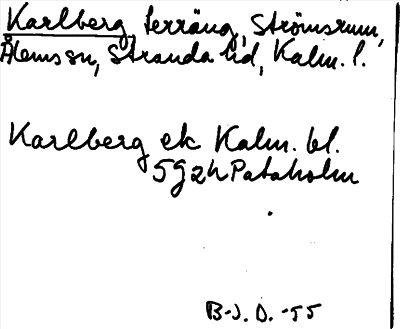 Karlberg, terräng, Strömsrum,
Ålems sn, Stranda hd, Kalm. l.
Karlberg ek Kalm. bl.
5G2h Pataholm
B-J. D. -55